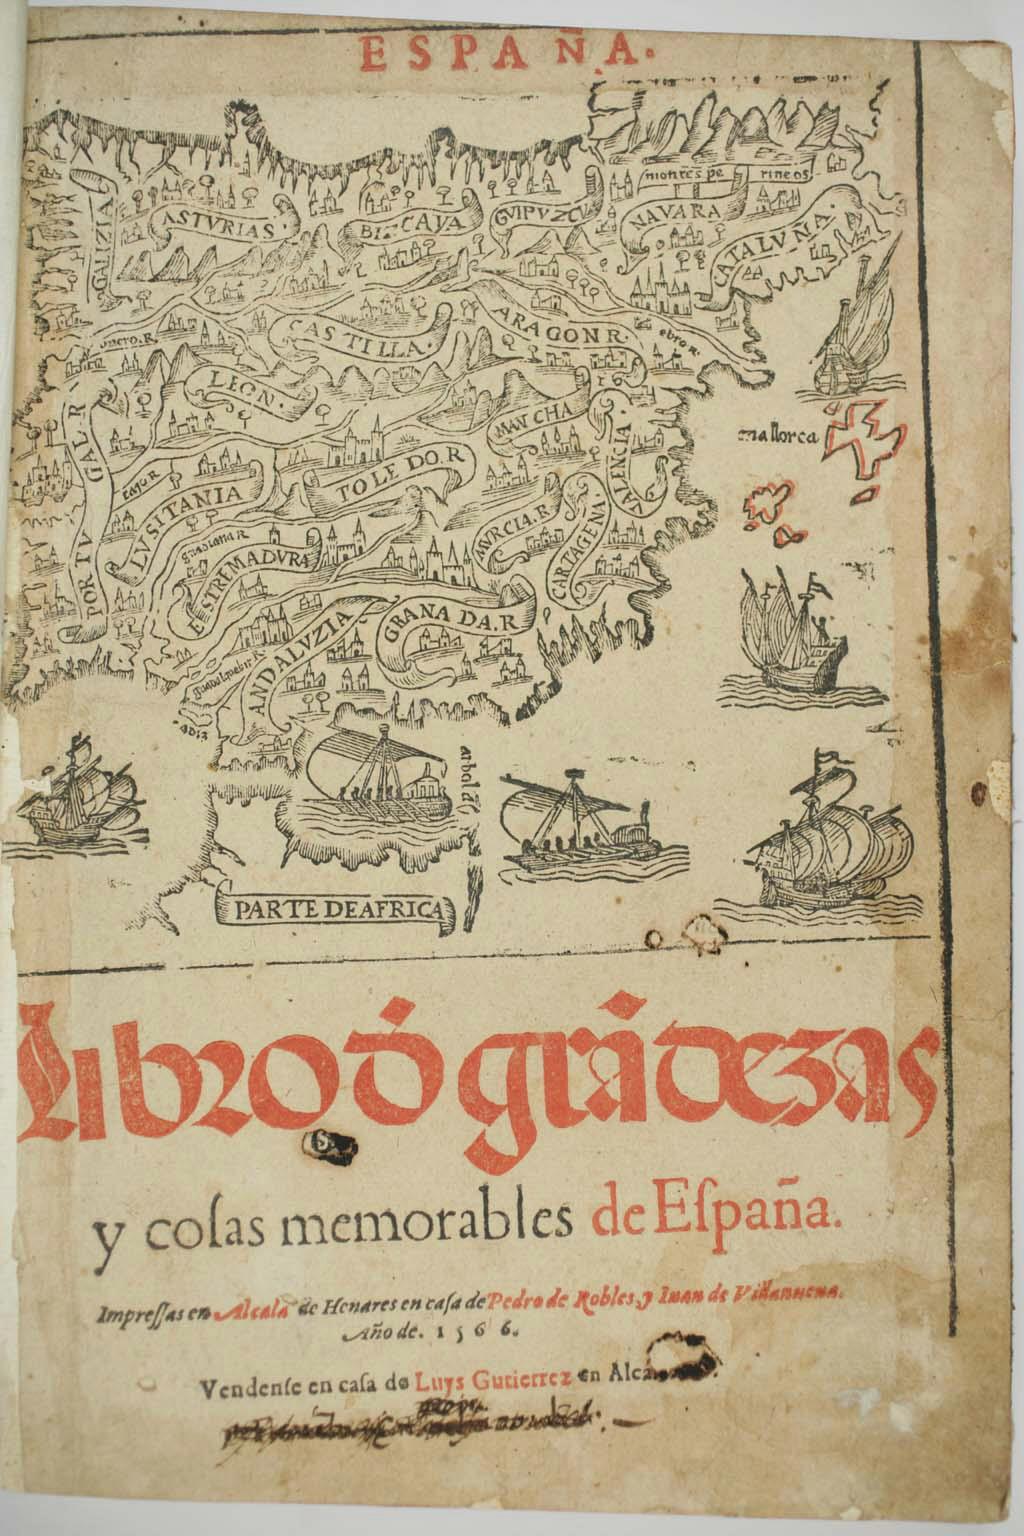 ESPAÑA.
montes pe rineos
GALIZIA
ASTURIAS.
BIZCAYA
GUIPUZCU
NAVARA
CATALVÑA.
CASTILLA.
ARAGON R.
ebro R.
LEON.
MANCHA
VALENCIA.
mallorca
PORTV GAL. R
taJo R
LVSITANIA
TOLEDO. R
MVRCIA. R
CARTAGENA.
guadiana R
ESTREMADVRA
GRANADA. R
ANDALVZIA
PARTE DE AFRICA
Libro đ grãdezas
y coſas memorables de Eſpaña.
Impreſſas en Alcala de Henares en caſa de Pedro de Robles, y Iuan de Villanueua.
Año de. 1566.
Vendenſe en caſa de Luys Gutierrez en Alcala